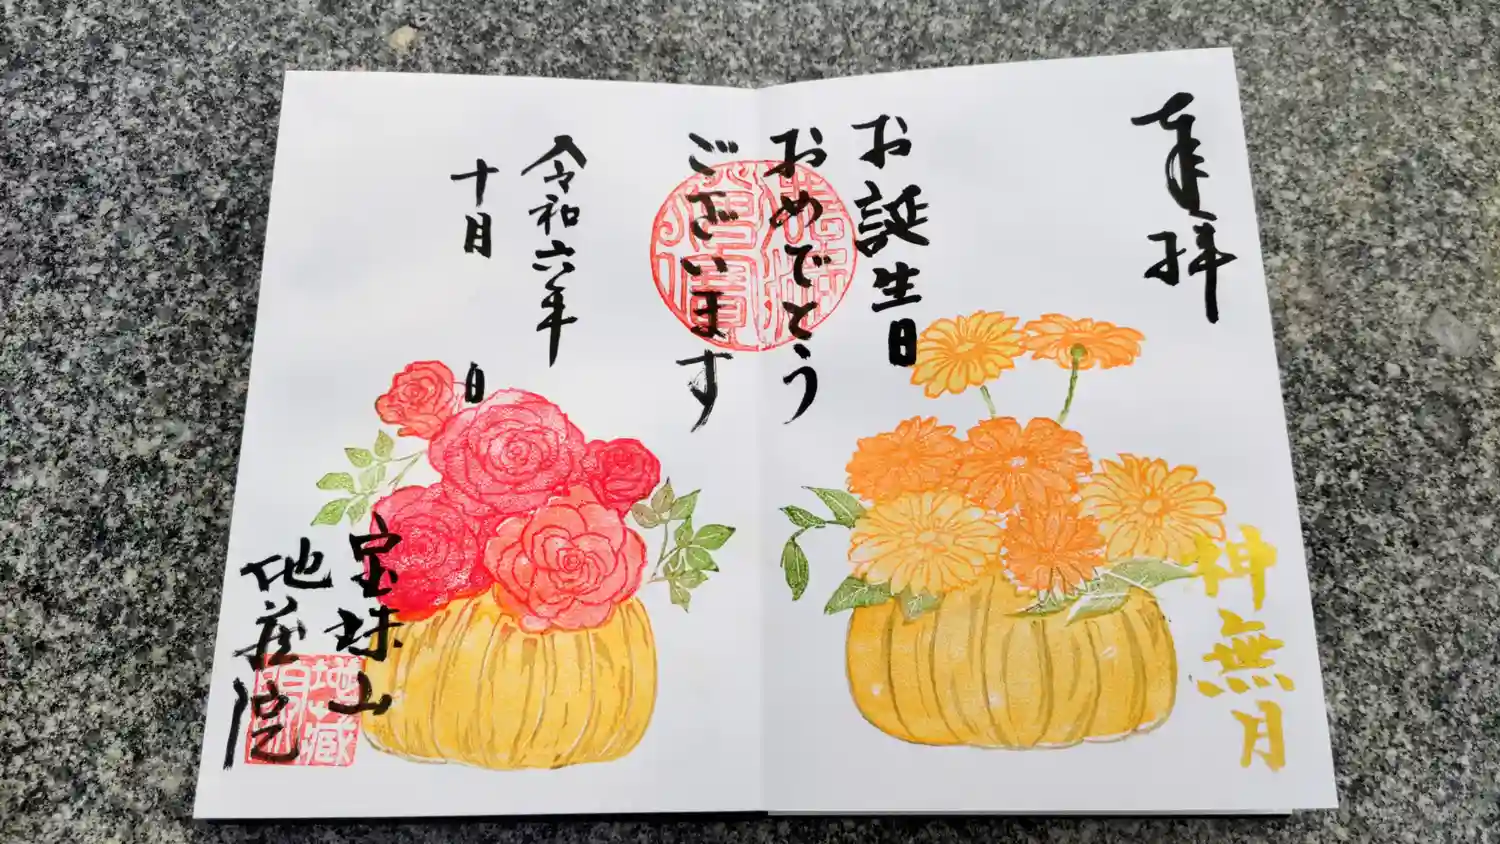 奉拝
お誕生日
おめでとう
ございます
令和六年
十月 日
神無月
宝珠山
地蔵院